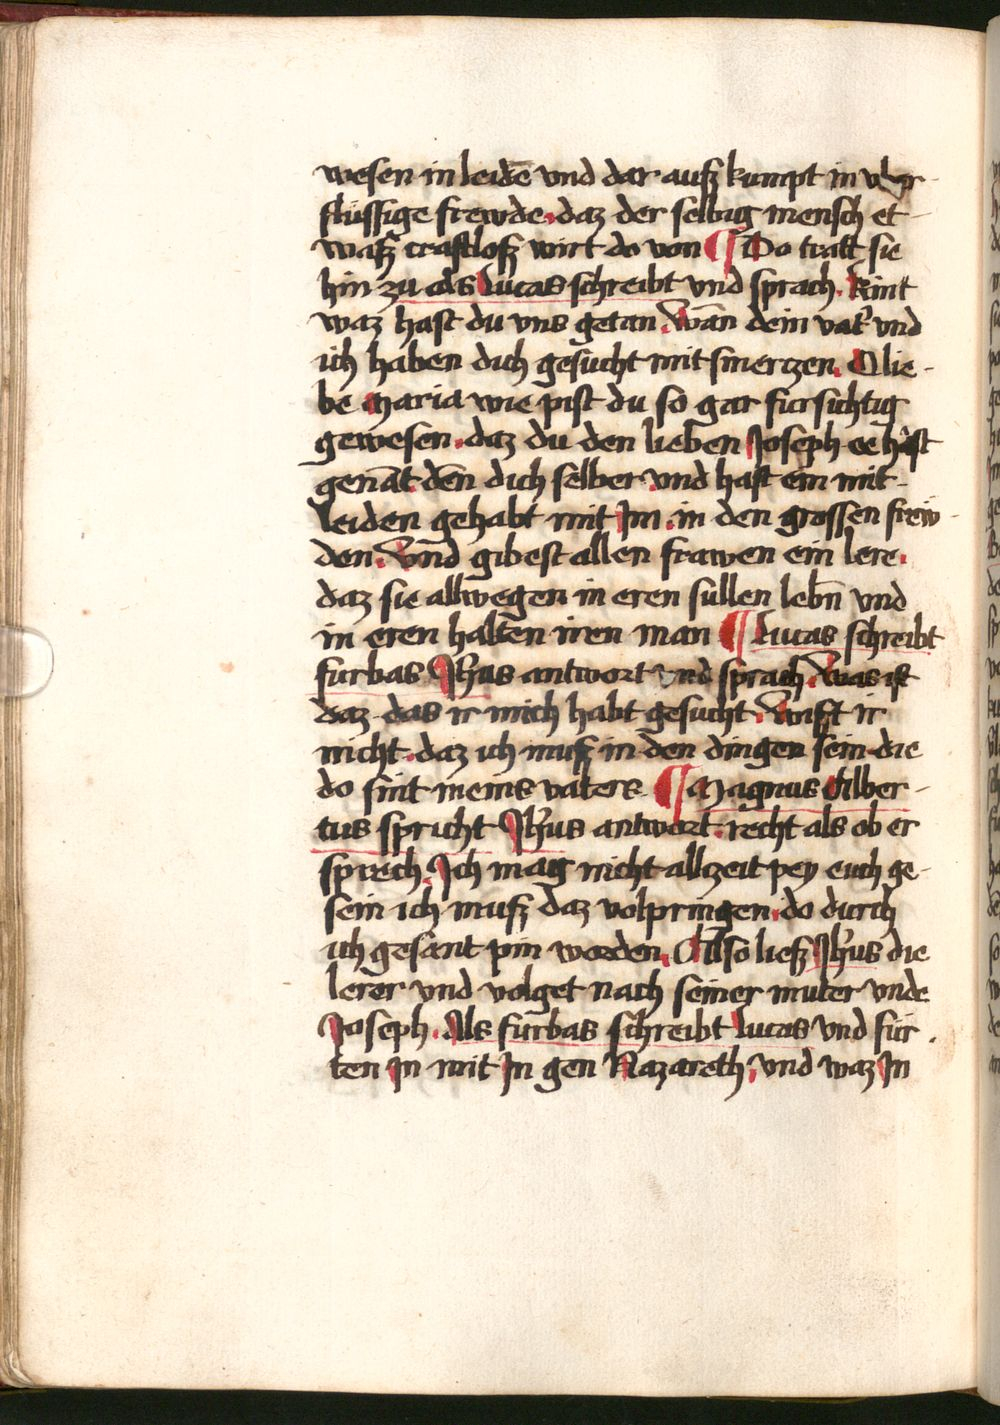 wesen in leidē vnd dar ausz kumpt in vber-
flüssige frewde. daz der selbig mensch et-
wasz craftlosz wirt do von ¶ Do tratt sie
hin zu als lucas schreibt vnd sprach. Kint
waz hast du vns getan. Wān dein vat' vnd
ich haben dich gesucht mit smertzen. O lie-
be Maria wie pist du so gar fursichtig
gewesen. daz du den lieben Joseph ee hast
genāt dēn dich selber vnd hast ein mit-
leiden gehabt mit Im. in den grossen frew-
den. Vnd gibest allen frawen ein lere.
daz sie allwegen in eren sullen lebn̄ vnd
in eren halten iren man ¶ Lucas schreibt
furbas Jhus antwort vnd sprach. Was ist
daz das ir mich habt gesucht. Wist ir
nicht. daz ich musz in den dingen sein die
do sint meins vaters ¶ Magnus Alber-
tus spricht Jhus antwort. recht als ob er
sprech. Ich mag nicht allzeit pey euch ge-
sein ich musz daz volpringen. do durch
ich gesant pin worden. Also liesz Jhus die
lerer vnd volget nach seiner muter vnde
Joseph. Als furbas schreibt lucas vnd für-
ten In mit In gen Nazareth, vnd waz In